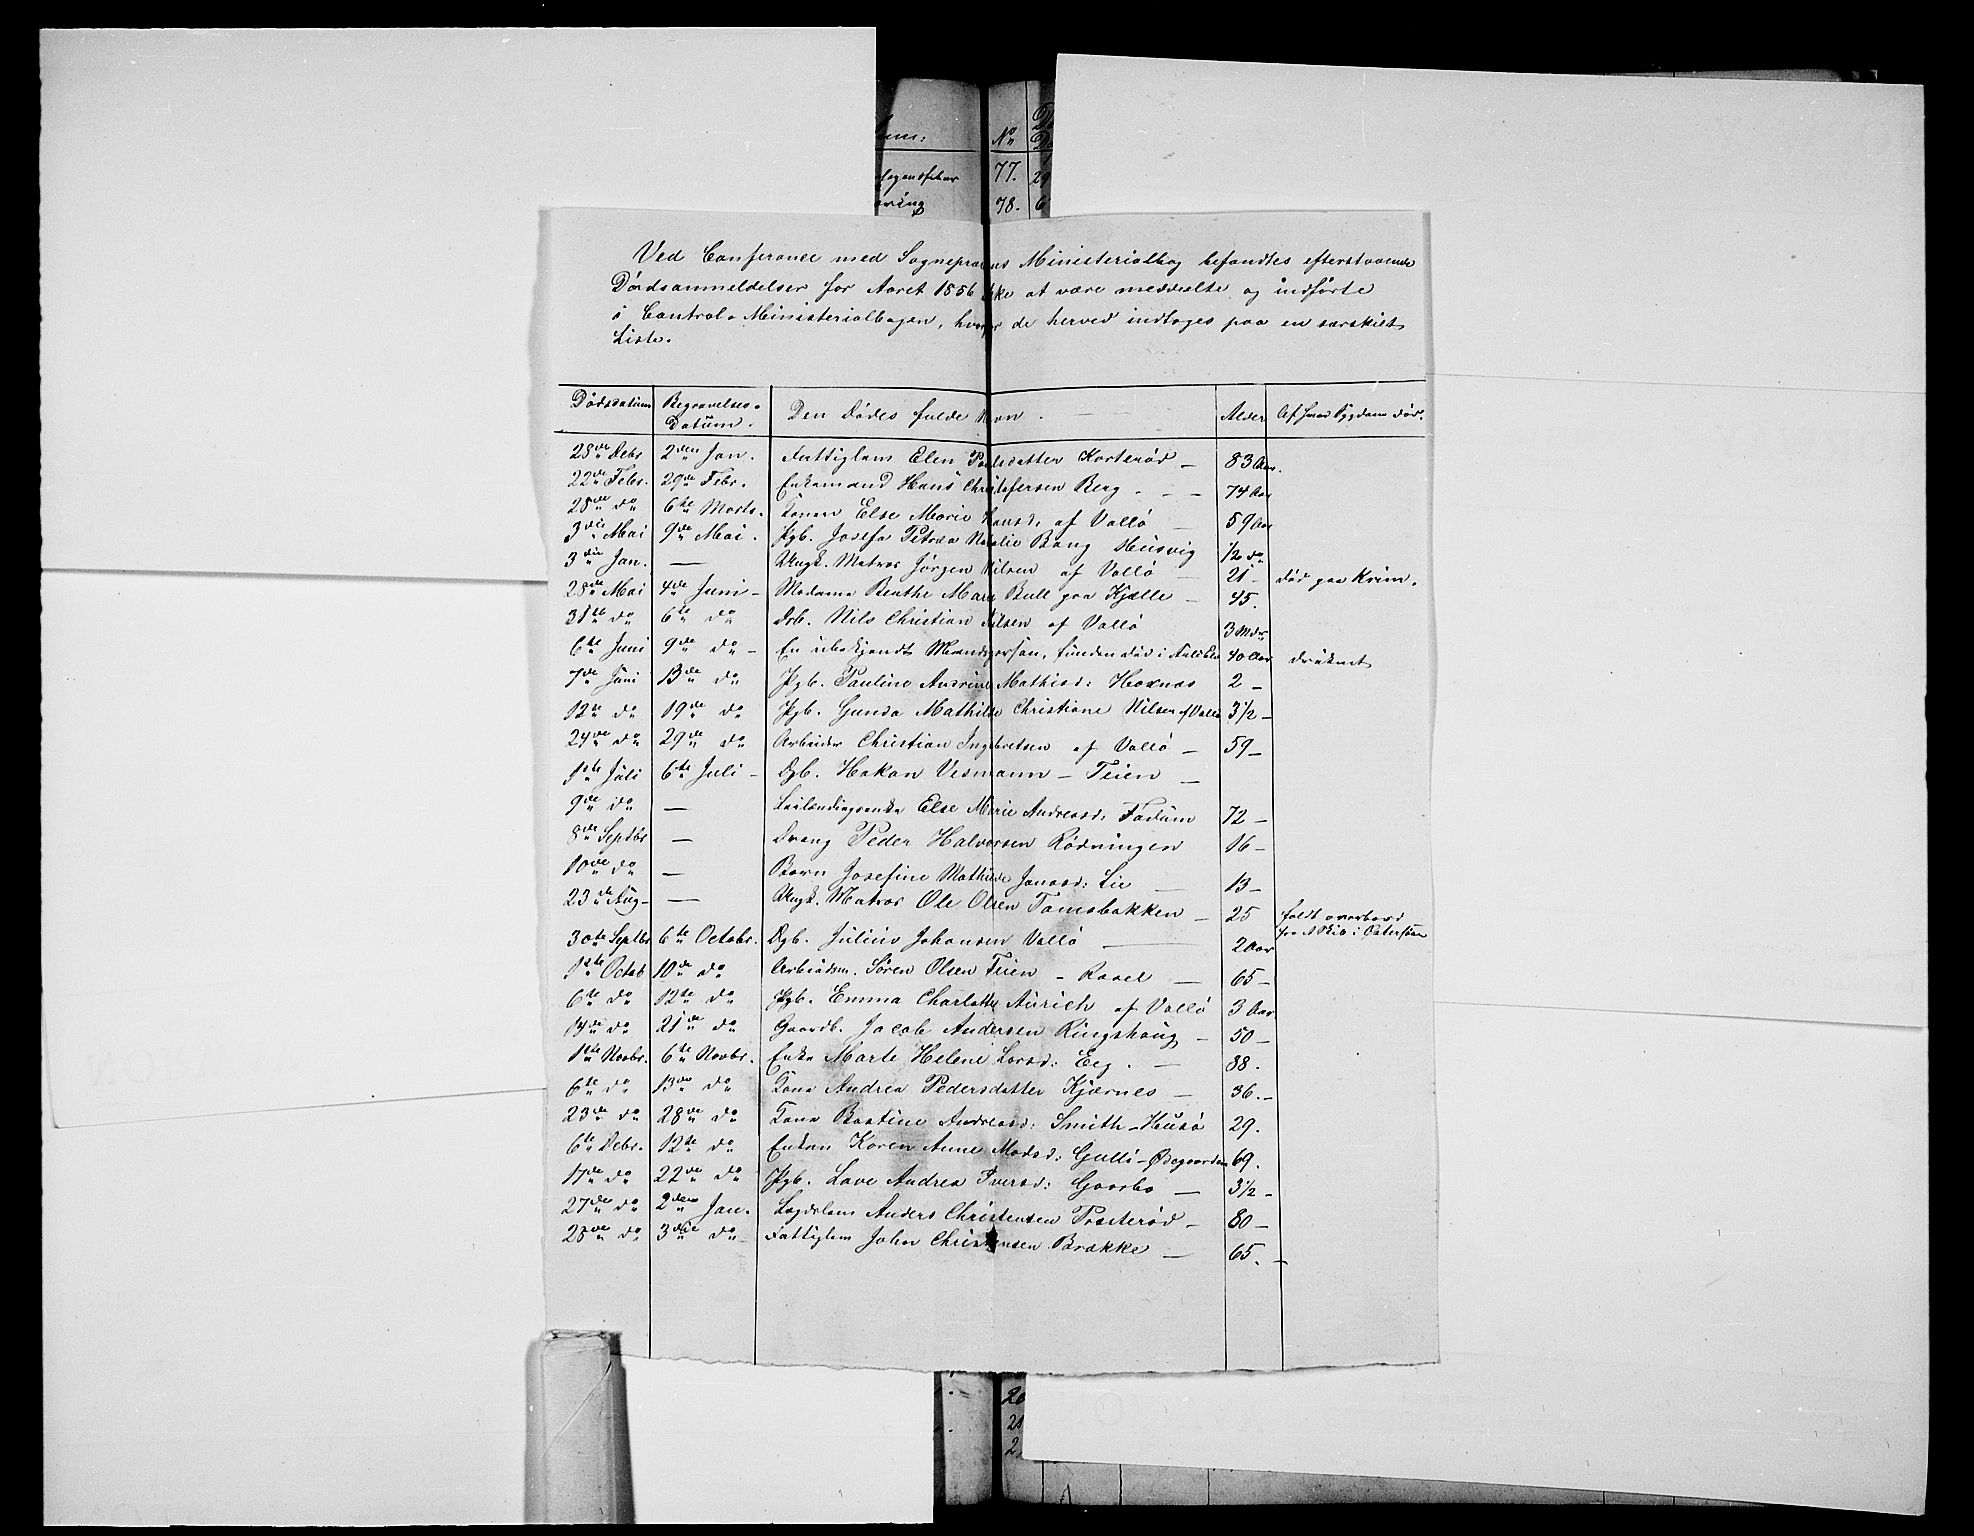 No
77. 29
78. 6
Ved Conferance med Sognepræstens Ministerialbog befandtes efterstaaende
Dødsanmeldelser for Aaret 1856 ikke at være meddeelte og indførte
i Control-Ministerialbogen, hvorfor de herved indtages paa en særskilt
Liste.
Dødsdatum Begravelses-Datum. Den Dødes fulde Navn. Alder Af hvad Sygdom død.
28de Debr 2den Jan. Fattiglem Elen Paulsdatter Korterød – 83 Aar.
22de Febr. 29de Febr. Enkemand Hans Christofersen Berg. – – 74 Aar
28de do 6te Marts. Konen Else Marie Hansd: af Vallø – 59 Aar
3die Mai 9de Mai. Pgb. Josefa Petrea Natalie Bang Husvig 1/2 do
3die Jan. — Ungk. Matros Jørgen Nilsen af Vallø – 21 – død paa Krim.
28de Mai 4de Juni – Madame Benthe Marie Bull paa Kjælle – 45.
31te do 6te do Drb. Nils Christian Nilsen af Vallø 3 Mdr
6te Juni 9de do – En ubekjendt Mandsperson, funden død i 40 Aar druknet
7de Juni 13de do Pgb. Pauline Andrine Mathisd: Hoxnæs 2 –
12te do 19de do Pgb. Gunda Mathilde Christiane Nilsen af Vallø 3½ –
24de do 29de do Arbeider Christian Ingebretsen af Vallø – 59 –
1ste Juli 6te Juli – Dgb. Hakon Vesmann – Teien –
9de do — Else Marie Andreasd: Fadum 72 –
8de Septbr — Dreng Peder Halvorsen Rødningen 16 –
10de do — Barn Josefine Mathilde Jonasd: Lie – 13 –
23de Aug – — Ungk. Matros Ole Olsen Tamsbakken – 25 faldt overbord
30te Septbr 6te Octobr. Dgb. Julius Johansen Vallø — 2 Aar fra Skib i Østersøen
1ste Octob 10de do Arbeidsm. Søren Olsen Teien – Ravel – 65 –
6te do 12te do Pgb. Emma Charlotte Aurich af Vallø 3 Aar
14de do 21de do Gaardb. Jacob Andersen Ringshaug – 50 –
1ste Novbr. 6te Novbr. Enke Marte Helene Larsd: Eeg. – 88.
6te do 13de do Kone Andrea Pedersdatter Kjærnes – 36. –
23de do 28de do Kone Bastine Andreasd: Smith – Husø 29.
6te Debr. 12te do Enken Karen Anne Madsd: Gulli – Ødegaarden 69.
17de do 22de do Pgb. Lave Andrea Iversd: Gaasbo – 3½ –
27de do 2den Jan. Lægdslem Anders Christensen Præsterød – 80 –
28de do 3die do – Fattiglem John Christensen Brække – 65. –